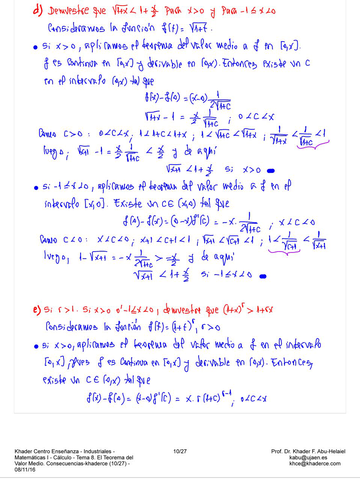 d) Demuestre que √1+x < 1 + x/2 para x>0 y para -1≤x<0
Consideramos la función f(t) = √1+t.
• Si x>0, aplicamos el teorema del valor medio a f en [0,x].
f es continua en [0,x] y derivable en (0,x). Entonces existe un c
en el intervalo (0,x) tal que
f(x)-f(0) = (x-0) 1/2√1+c
√1+x - 1 = x/2 1/√1+c ; 0<c<x
Como c>0 : 0<c<x, 1<1+c<1+x ; 1<√1+c<√1+x ; 1/√1+x < 1/√1+c < 1
luego, √x+1 - 1 = x/2 1/√1+c < x/2 y de aquí
√x+1 < 1 + x/2 si x>0
• Si -1≤x<0, aplicamos el teorema del valor medio a f en el
intervalo [x,0]. Existe un c∈(x,0) tal que
f(0)-f(x) = (0-x)f'(c) = -x. 1/2√1+c ; x<c<0
Como c<0 : x<c<0, x+1<c+1<1 ; √x+1<√c+1<1 ; 1< 1/√c+1 < 1/√x+1
luego, 1-√x+1 = -x 1/2√1+c > -x/2 y de aquí
√x+1 < 1 + x/2 si -1≤x<0
e) Si r>1. Si x>0 o -1≤x<0, demuestre que (1+x)^r > 1+rx
Consideramos la función f(t) = (1+t)^r, r>0
• Si x>0, aplicamos el teorema del valor medio a f en el intervalo
[0,x], pues f es continua en [0,x] y derivable en (0,x). Entonces,
existe un c∈(0,x) tal que
f(x)-f(0) = (x-0)f'(c) = x.r(1+c)^r-1 ; 0<c<x
Khader Centro Enseñanza - Industriales -
Matemáticas I - Cálculo - Tema 8. El Teorema del
Valor Medio. Consecuencias-khaderce (10/27) -
08/11/16
10/27
Prof. Dr. Khader F. Abu-Helaiel
kabu@ujaen.es
khce@khaderce.com